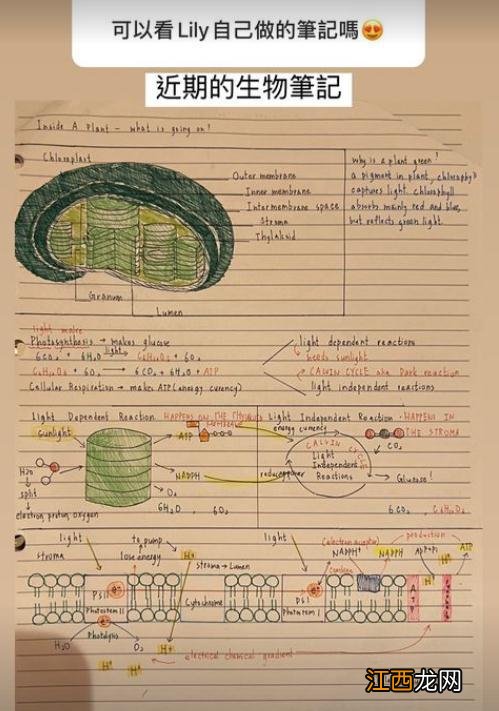 可以看 Lily 自己做的筆記嗎😍
近期的生物筆記
Inside A Plant - what is going on?
Chloroplast
Outer membrane
Inner membrane
Intermembrane space
Stroma
Thylakoid
Granum
Lumen
why is a plant green?
a pigment in plant, chlorophyll
captures light. Chlorophyll
absorbs mainly red and blue,
but reflects green light.
light makes
Photosynthesis → makes glucose
6CO₂ + 6H₂O light→ C₆H₁₂O₆ + 6O₂
C₆H₁₂O₆ + 6O₂ → 6CO₂ + 6H₂O + ATP
Cellular Respiration → makes ATP (energy curency)
light dependent reactions
needs sunlight
CALVIN CYCLE aka Dark reaction
light independent reactions
Light Dependent Reaction HAPPENS ON THE
MEMBRANE
Sunlight
H₂O
split
electron proton oxygen
ATP
NADPH
O₂
6H₂O , 6O₂
Light Independent Reaction · HAPPENS IN
THE STROMA
energy currency
CALVIN CYCLE
Light
Independent
Reactions
CO₂
Glucose!
6CO₂ , C₆H₁₂O₆
light
stroma
to pump
lose energy
H+
stroma → Lumen
light
(electron acceptor)
NADPH
production
ADP+Pi
ATP
H+
PSII
e-
Photosystem II
Photolysis
Cytochrome
PSI
e-
Photosystem I
ATP
H₂O
O₂
H+
H+
H+
electrical chemical gradient
江西龙网